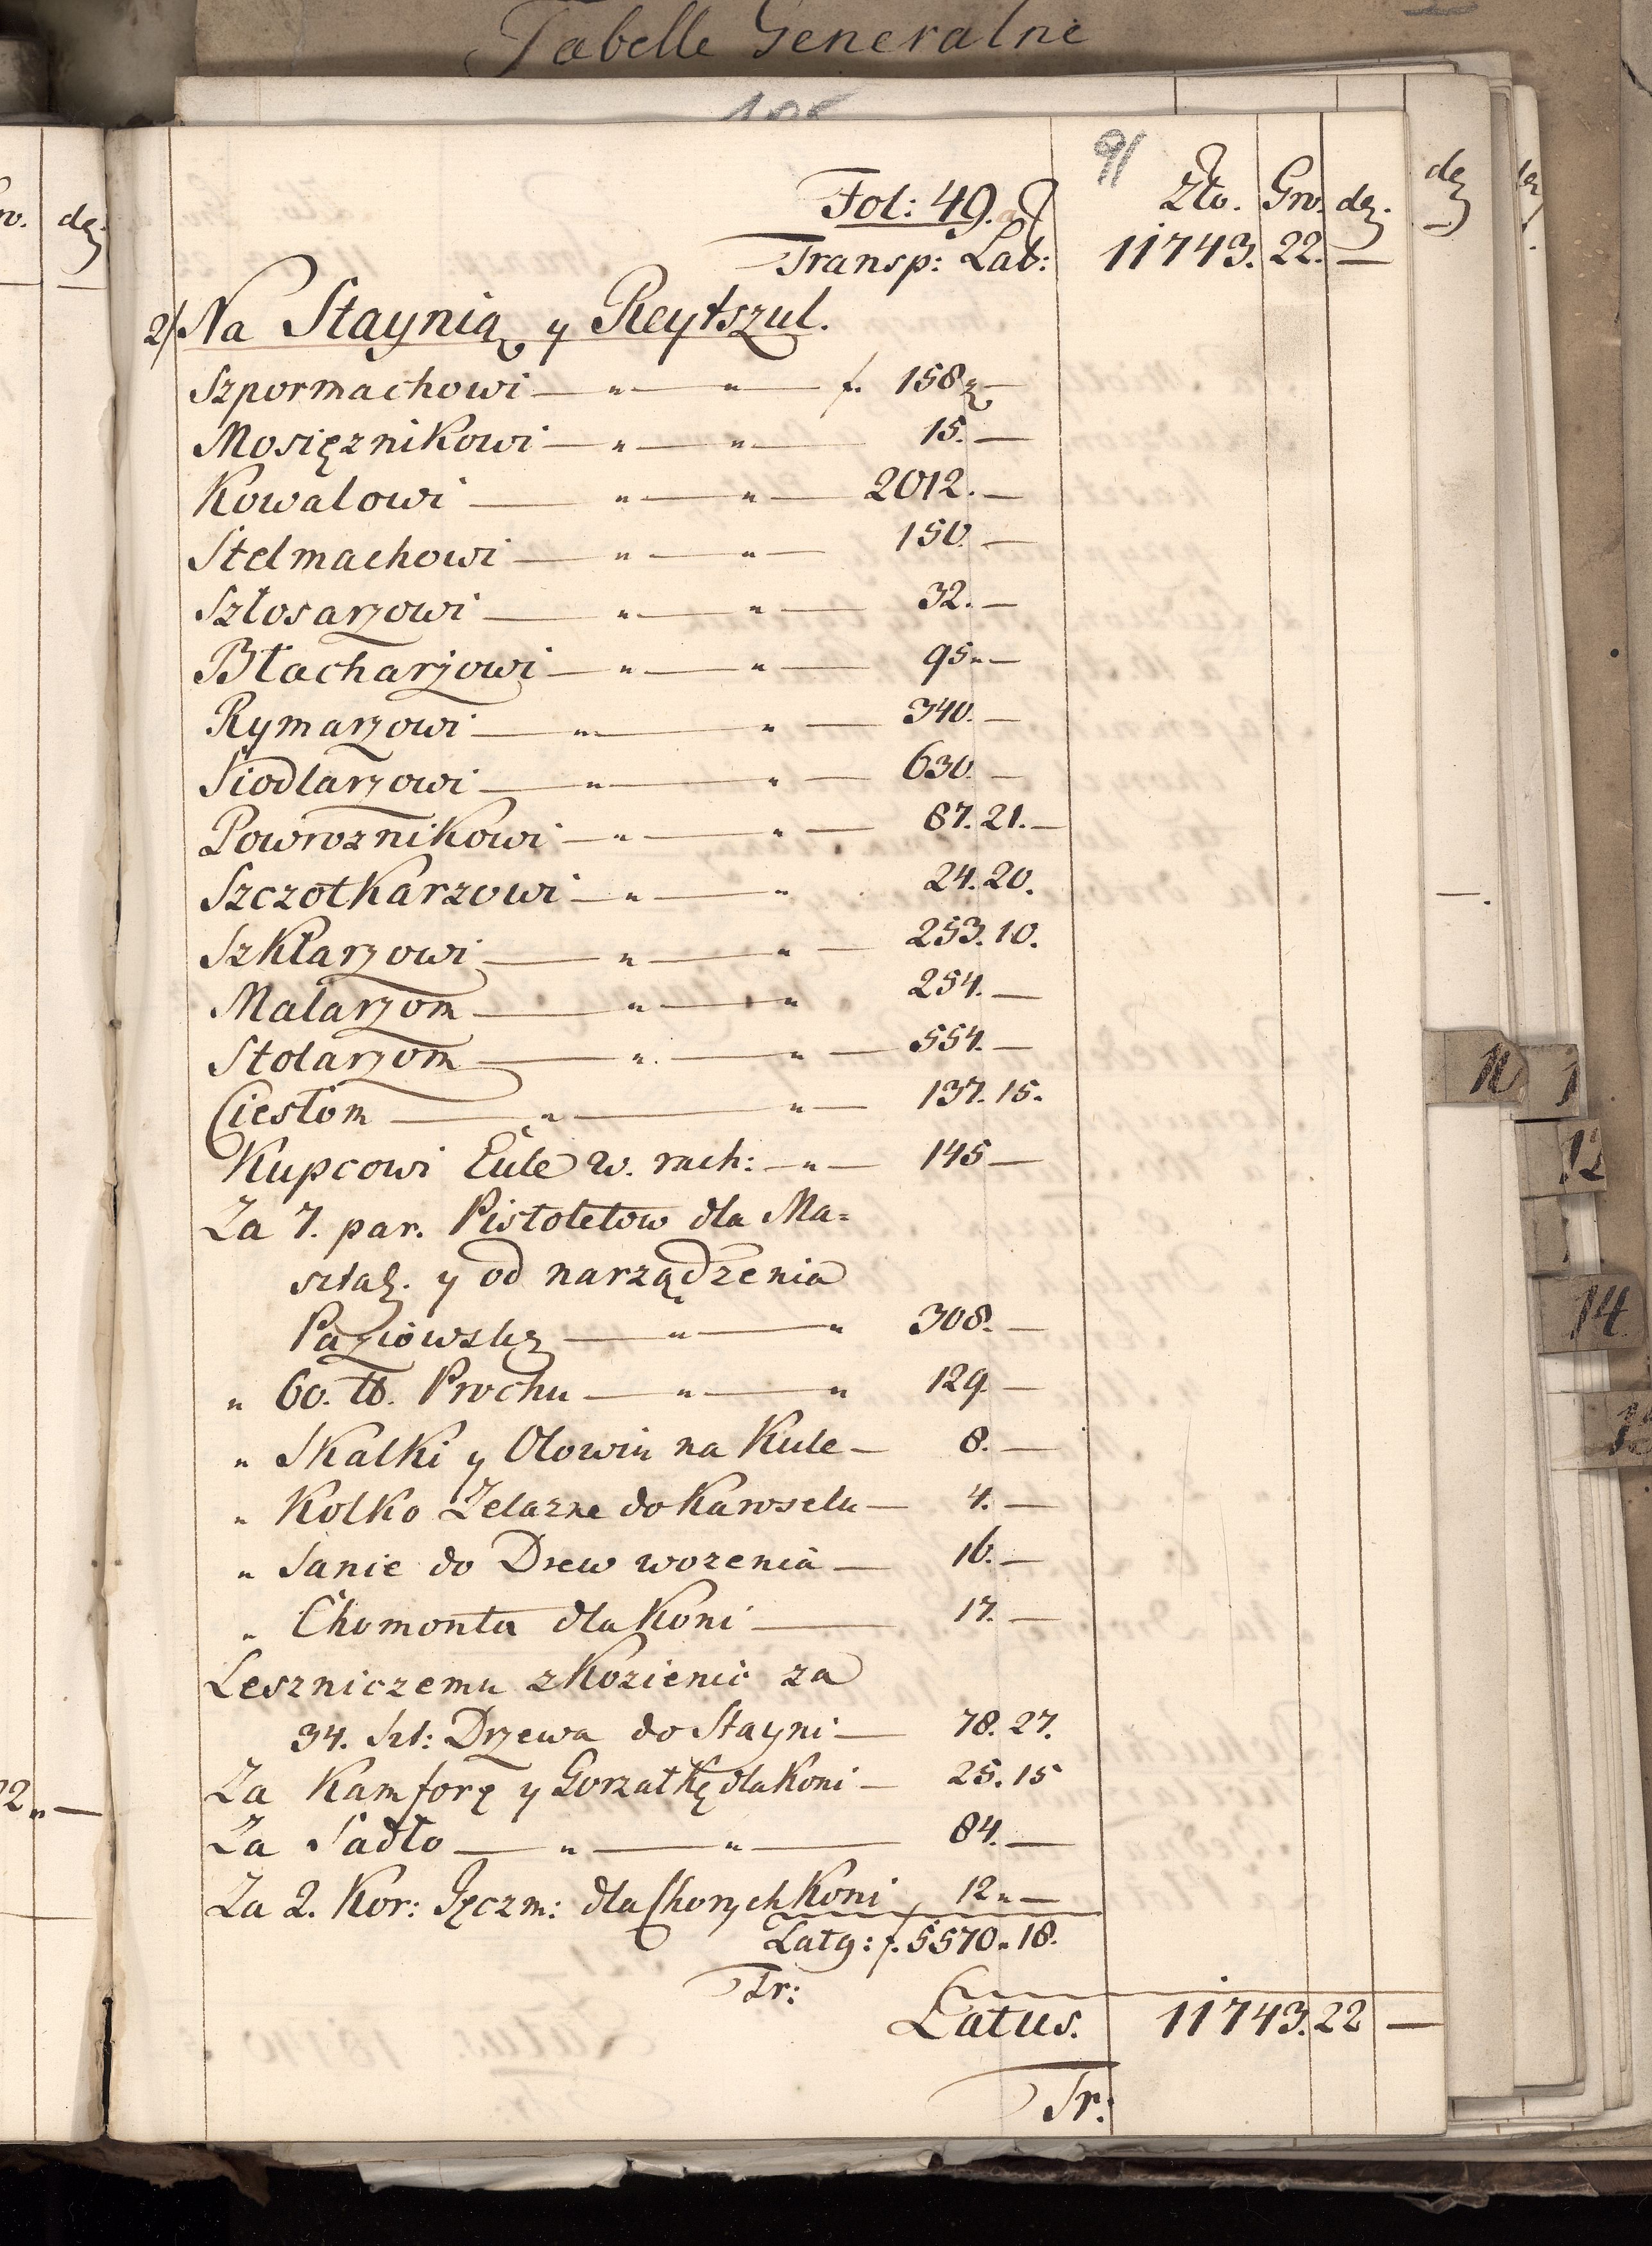 Tabelle Generalne
91
Fol: 49.
Zło. Gro. de.
Transp: Lat: 11743. 22. —
2/ Na Staynią y Reytszul.
Szpormachowi — " — " — f. 158 " —
Mosięznikowi — " — " — 15. —
Kowalowi — " — " — 2012. —
Stelmachowi — " — " — 150. —
Szłosarzowi — " — " — 32. —
Błacharzowi — " — " — 95 " —
Rymarzowi — " — " — 340. —
Siodlarzowi — " — " — 630. —
Powroznikowi — " — " — 87. 21. —
Szczotkarzowi — " — " 24. 20.
Szklarzowi — " — " — 253. 10.
Malarzom — " — " 254. —
Stolarzom — " — " — 554. —
Ciesłom — " — " — 137. 15.
Kupcowi Eule w. rach: — " — 145 —
Za 7. par. Pistoletow dla Ma=
sztal. y od narządzenia
Paziowskz — " — " 308. —
" 60. ℔. Prochu — " — " 129 —
" Skalki y Olowiu na Kule — 8. —
" Kolko Zelazne do Karoselu — 4. —
" Sanie do Drew wozenia — 16. —
" Chomonta dla Koni — 17. —
Leszniczemu z Kozienic za
34. Szt: Drzewa do Stayni — 78. 27.
Za Kamforę y Gorzałkę dla Koni — 25. 15
Za Sadło — " — " — 84. —
Za 2. Kor: Jęczm: dla Chorych Koni 12 " —
Latg: f. 5570 " 18.
Tr:
Latus. 11743. 22 —
Tr: